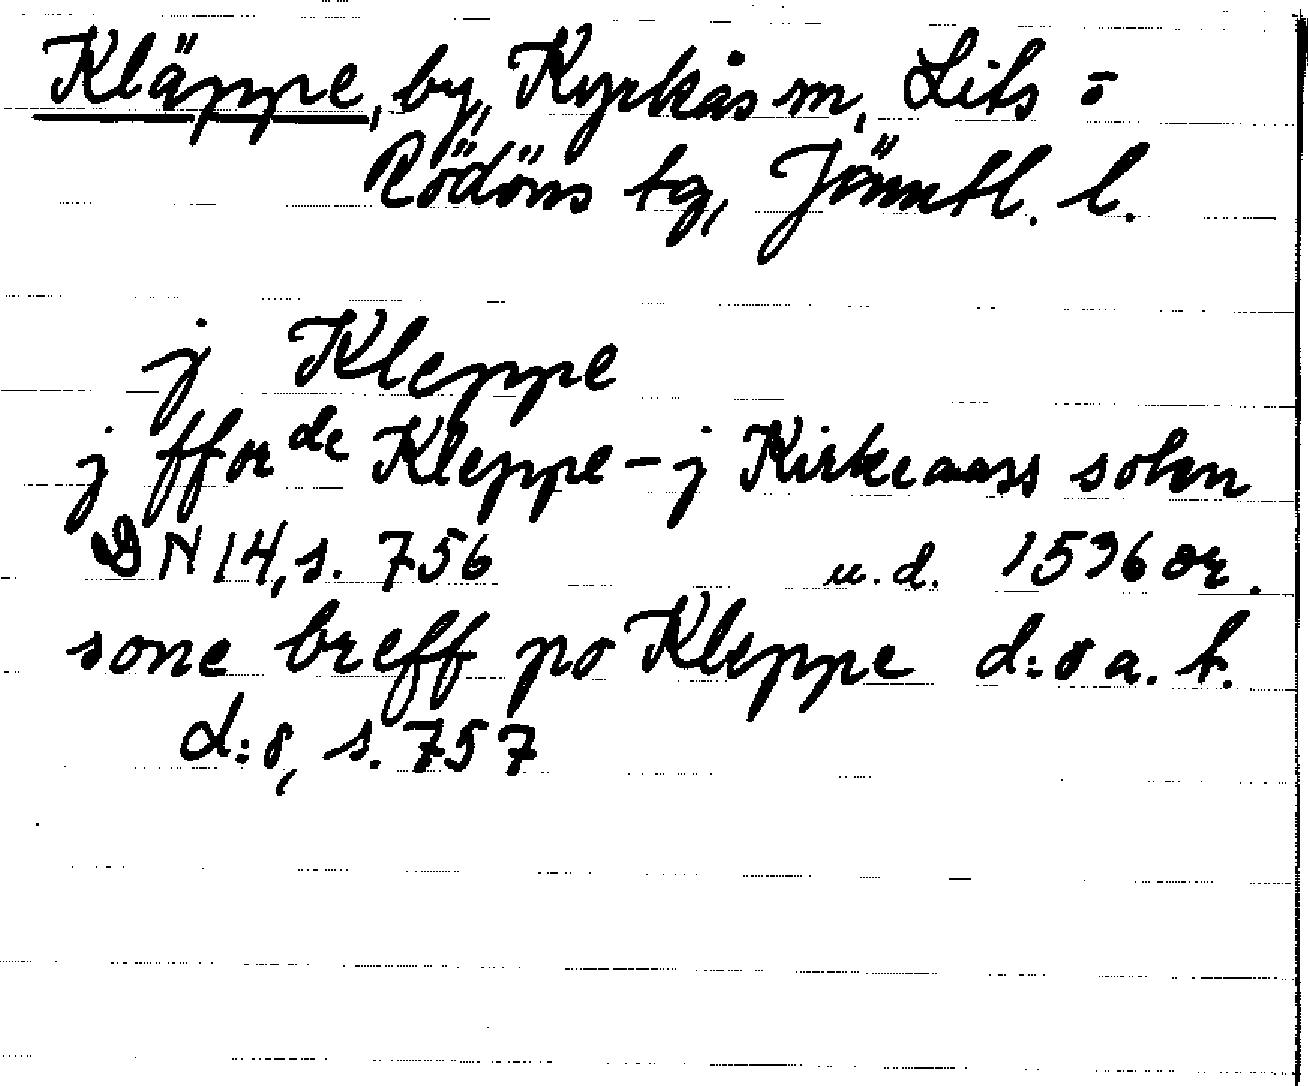 Kläppe, by, Kyrkås sn, Lits o
Rödöns tg, Jämtl. l.
j Kleppe
j fforde Kleppe - j Kirkeaass sokn
DN 14, s. 756 u.d. 1536 or.
sone breff po Kleppe d:o a. st.
d:o, s. 757